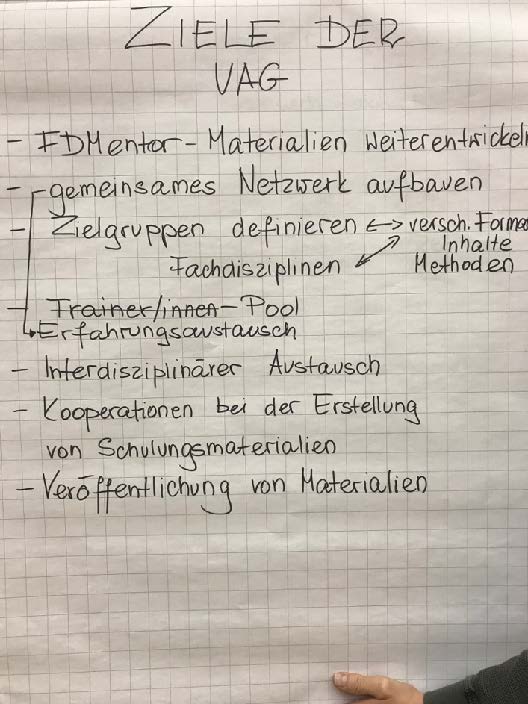 ZIELE DER
VAG
- FDMentor - Materialien weiterentwickeln
- gemeinsames Netzwerk aufbauen
- Zielgruppen definieren <-> versch. Format
Inhalte
Fachdisziplinen Methoden
- Trainer/innen-Pool
Erfahrungsaustausch
- Interdisziplinärer Austausch
- Kooperationen bei der Erstellung
von Schulungsmaterialien
- Veröffentlichung von Materialien